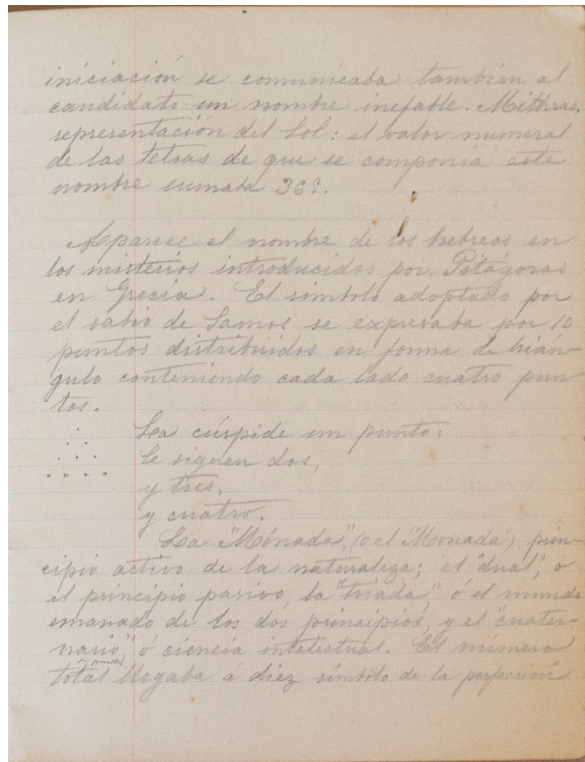 iniciación se comunicaba también al
candidato un nombre inefable. Mithras,
representación del Sol: el valor numeral
de las letras de que se componia este
nombre sumaba 365.
Aparece el nombre de los hebreos en
los misterios introducidos por Pitágoras
en Grecia. El simbolo adoptado por
el sabio de Samos se expresaba por 10
puntos distribuidos en forma de trián-
gulo conteniendo cada lado cuatro pun-
tos.
La cúspide un punto:
le siguen dos,
y tres,
y cuatro.
La "Mónada", (o el "Monada"), prin-
cipio activo de la naturaleza; el "dual", o
el principio pasivo, la "triada" ó el mundo
emanado de los dos principios, y el "cuater-
nario" ó ciencia intelectual. El número
total llegaba á diez símbolo de la perfección